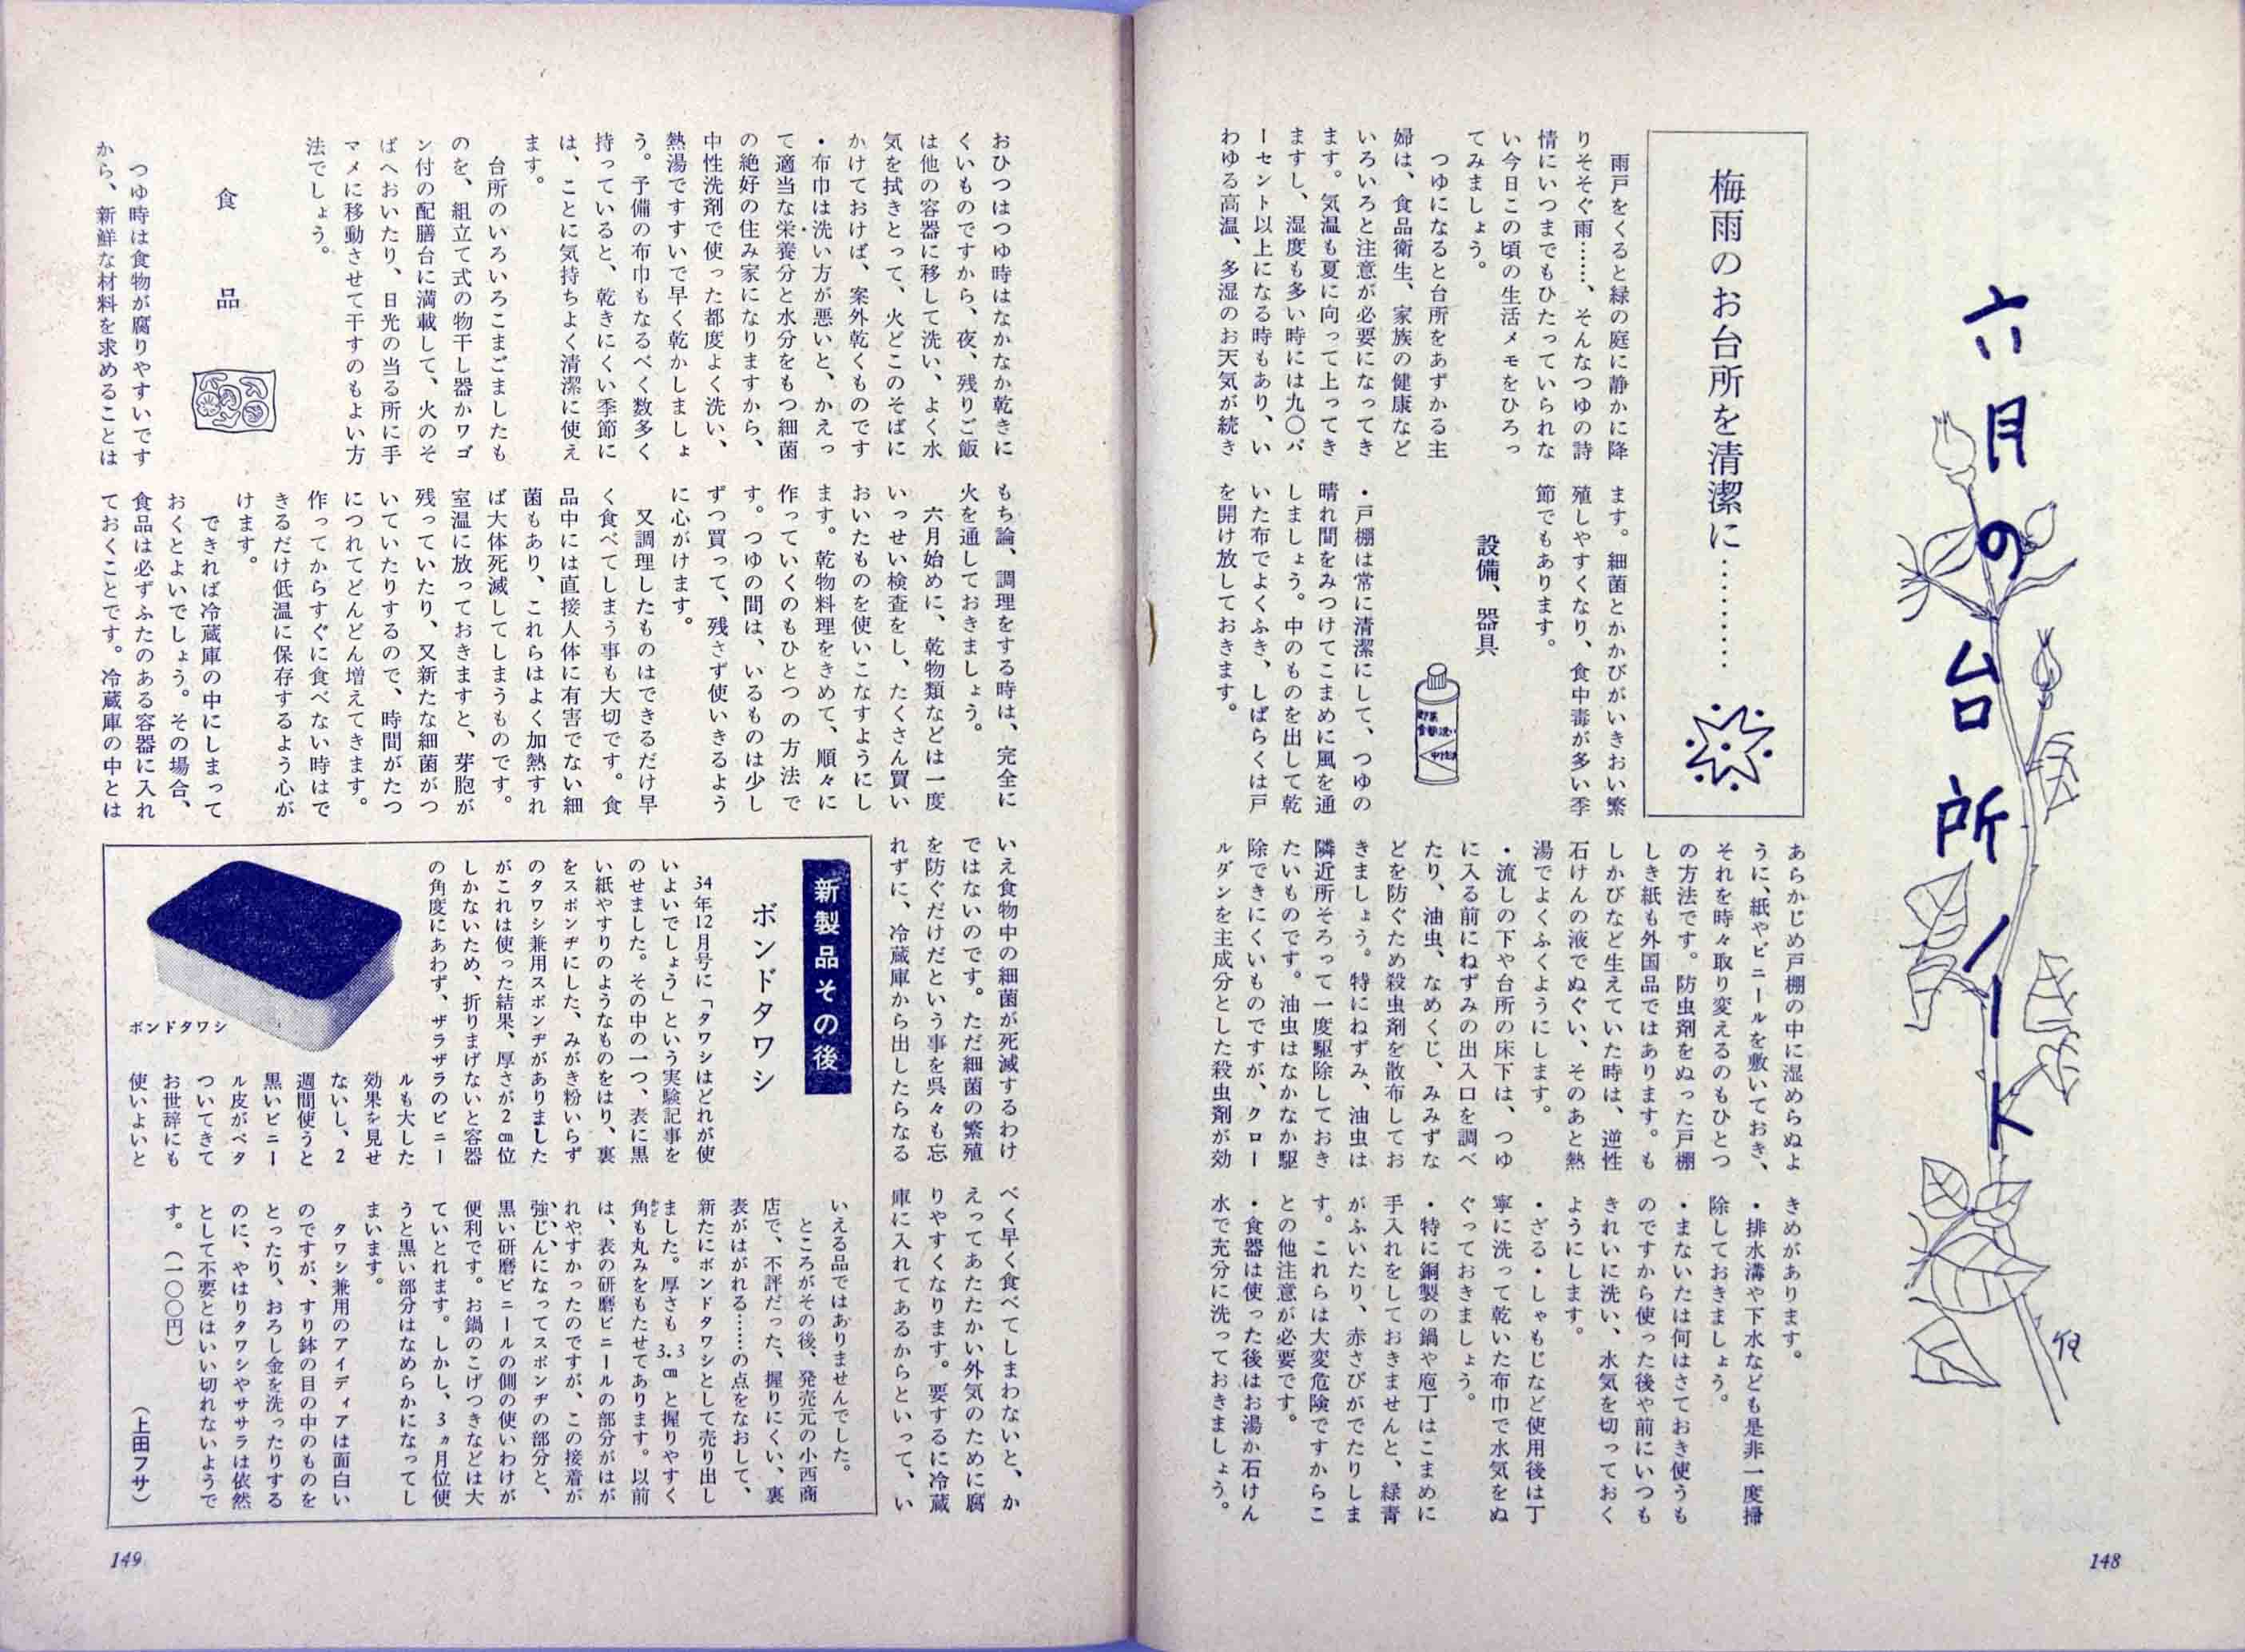 六月の台所ノート
梅雨のお台所を清潔に………
雨戸をくると緑の庭に静かに降
りそそぐ雨……、そんなつゆの詩
情にいつまでもひたっていられな
い今日この頃の生活メモをひろっ
てみましょう。
つゆになると台所をあずかる主
婦は、食品衛生、家族の健康など
いろいろと注意が必要になってき
ます。気温も夏に向って上ってき
ますし、湿度も多い時には九〇パ
ーセント以上になる時もあり、い
わゆる高温、多湿のお天気が続き
ます。細菌とかかびがいきおい繁
殖しやすくなり、食中毒が多い季
節でもあります。
設備、器具
・戸棚は常に清潔にして、つゆの
晴れ間をみつけてこまめに風を通
しましょう。中のものを出して乾
いた布でよくふき、しばらくは戸
を開け放しておきます。
あらかじめ戸棚の中に湿めらぬよ
うに、紙やビニールを敷いておき、
それを時々取り変えるのもひとつ
の方法です。防虫剤をぬった戸棚
しき紙も外国品ではあります。も
しかびなど生えていた時は、逆性
石けんの液でぬぐい、そのあと熱
湯でよくふくようにします。
・流しの下や台所の床下は、つゆ
に入る前にねずみの出入口を調べ
たり、油虫、なめくじ、みみずな
どを防ぐため殺虫剤を散布してお
きましょう。特にねずみ、油虫は
隣近所そろって一度駆除しておき
たいものです。油虫はなかなか駆
除できにくいものですが、クロー
ルダンを主成分とした殺虫剤が効
きめがあります。
・排水溝や下水なども是非一度掃
除しておきましょう。
・まないたは何はさておき使うも
のですから使った後や前にいつも
きれいに洗い、水気を切っておく
ようにします。
・ざる・しゃもじなど使用後は丁
寧に洗って乾いた布巾で水気をぬ
ぐっておきましょう。
・特に銅製の鍋や庖丁はこまめに
手入れをしておきませんと、緑青
がふいたり、赤さびがでたりしま
す。これらは大変危険ですからこ
との他注意が必要です。
・食器は使った後はお湯か石けん
水で充分に洗っておきましょう。
148
おひつはつゆ時はなかなか乾きに
くいものですから、夜、残りご飯
は他の容器に移して洗い、よく水
気を拭きとって、火どこのそばに
かけておけば、案外乾くものです
・布巾は洗い方が悪いと、かえっ
て適当な栄養分と水分をもつ細菌
の絶好の住み家になりますから、
中性洗剤で使った都度よく洗い、
熱湯ですすいで早く乾かしましょ
う。予備の布巾もなるべく数多く
持っていると、乾きにくい季節に
は、ことに気持ちよく清潔に使え
ます。
台所のいろいろこまごましたも
のを、組立て式の物干し器かワゴ
ン付の配膳台に満載して、火のそ
ばへおいたり、日光の当る所に手
マメに移動させて干すのもよい方
法でしょう。
食品
つゆ時は食物が腐りやすいです
から、新鮮な材料を求めることは
もち論、調理をする時は、完全に
火を通しておきましょう。
六月始めに、乾物類などは一度
いっせい検査をし、たくさん買い
おいたものを使いこなすようにし
ます。乾物料理をきめて、順々に
作っていくのもひとつの方法で
す。つゆの間は、いるものは少し
ずつ買って、残さず使いきるよう
に心がけます。
又調理したものはできるだけ早
く食べてしまう事も大切です。食
品中には直接人体に有害でない細
菌もあり、これらはよく加熱すれ
ば大体死滅してしまうものです。
室温に放っておきますと、芽胞が
残っていたり、又新たな細菌がつ
いていたりするので、時間がたつ
につれてどんどん増えてきます。
作ってからすぐに食べない時はで
きるだけ低温に保存するよう心が
けます。
できれば冷蔵庫の中にしまって
おくとよいでしょう。その場合、
食品は必ずふたのある容器に入れ
ておくことです。冷蔵庫の中とは
いえ食物中の細菌が死滅するわけ
ではないのです。ただ細菌の繁殖
を防ぐだけだという事を呉々も忘
れずに、冷蔵庫から出したらなる
べく早く食べてしまわないと、か
えってあたたかい外気のために腐
りやすくなります。要するに冷蔵
庫に入れてあるからといって、い
新製品その後
ボンドタワシ
34年12月号に「タワシはどれが使
いよいでしょう」という実験記事を
のせました。その中の一つ、表に黒
い紙やすりのようなものをはり、裏
をスポンヂにした、みがき粉いらず
のタワシ兼用スポンヂがありました
がこれは使った結果、厚さが2㎝位
しかないため、折りまげないと容器
の角度にあわず、ザラザラのビニー
ルも大した
効果を見せ
ないし、2
週間使うと
黒いビニー
ル皮がベタ
ついてきて
お世辞にも
使いよいと
ボンドタワシ
いえる品ではありませんでした。
ところがその後、発売元の小西商
店で、不評だった、握りにくい、裏
表がはがれる……の点をなおして、
新たにボンドタワシとして売り出し
ました。厚さも3.3㎝と握りやすく
角も丸みをもたせてあります。以前
は、表の研磨ビニールの部分がはが
れやすかったのですが、この接着が
強じんになってスポンヂの部分と、
黒い研磨ビニールの側の使いわけが
便利です。お鍋のこげつきなどは大
ていとれます。しかし、3ヵ月位使
うと黒い部分はなめらかになってし
まいます。
タワシ兼用のアイディアは面白い
のですが、すり鉢の目の中のものを
とったり、おろし金を洗ったりする
のに、やはりタワシやササラは依然
として不要とはいい切れないようで
す。（一〇〇円）
（上田フサ）
149